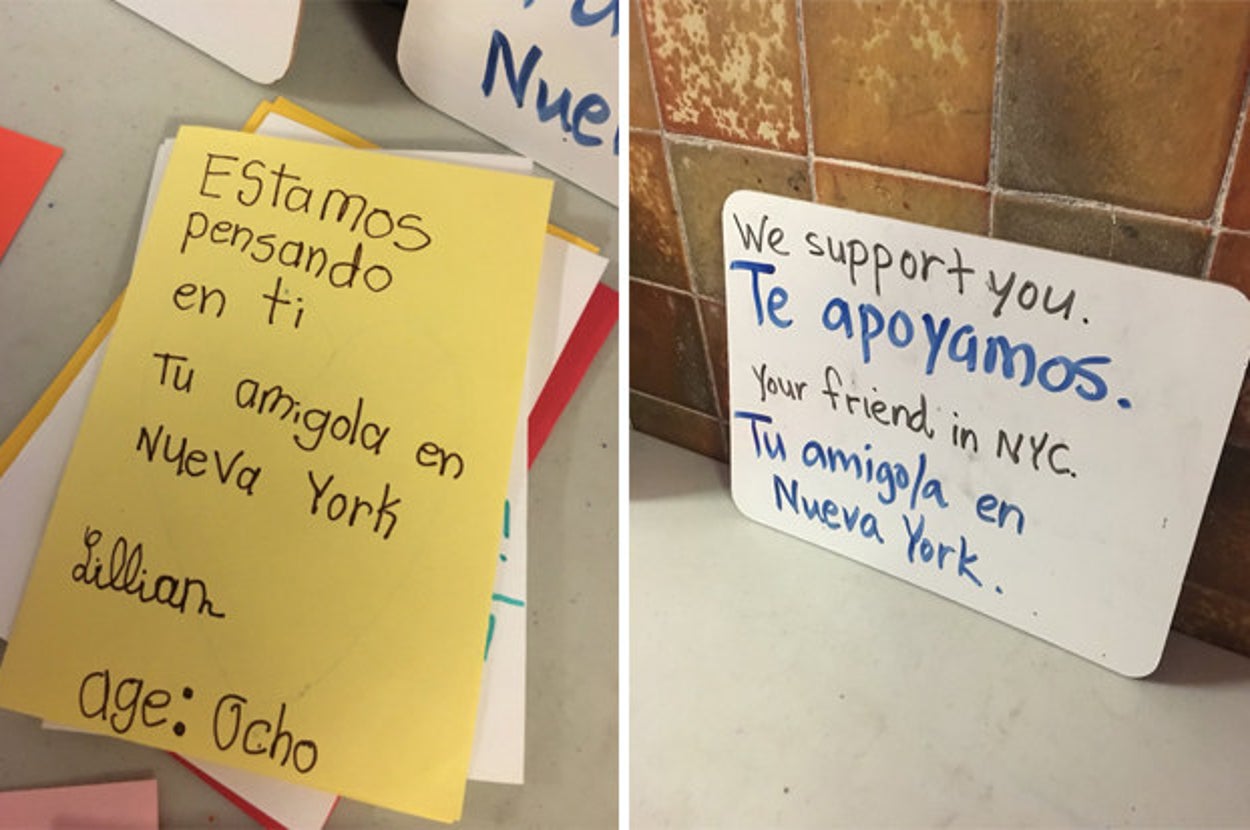 Nue
Estamos
pensando
en ti
Tu amigola en
Nueva York
Lillian
age: Ocho
We support you.
Te apoyamos.
Your friend in NYC.
Tu amigo/a en
Nueva York.